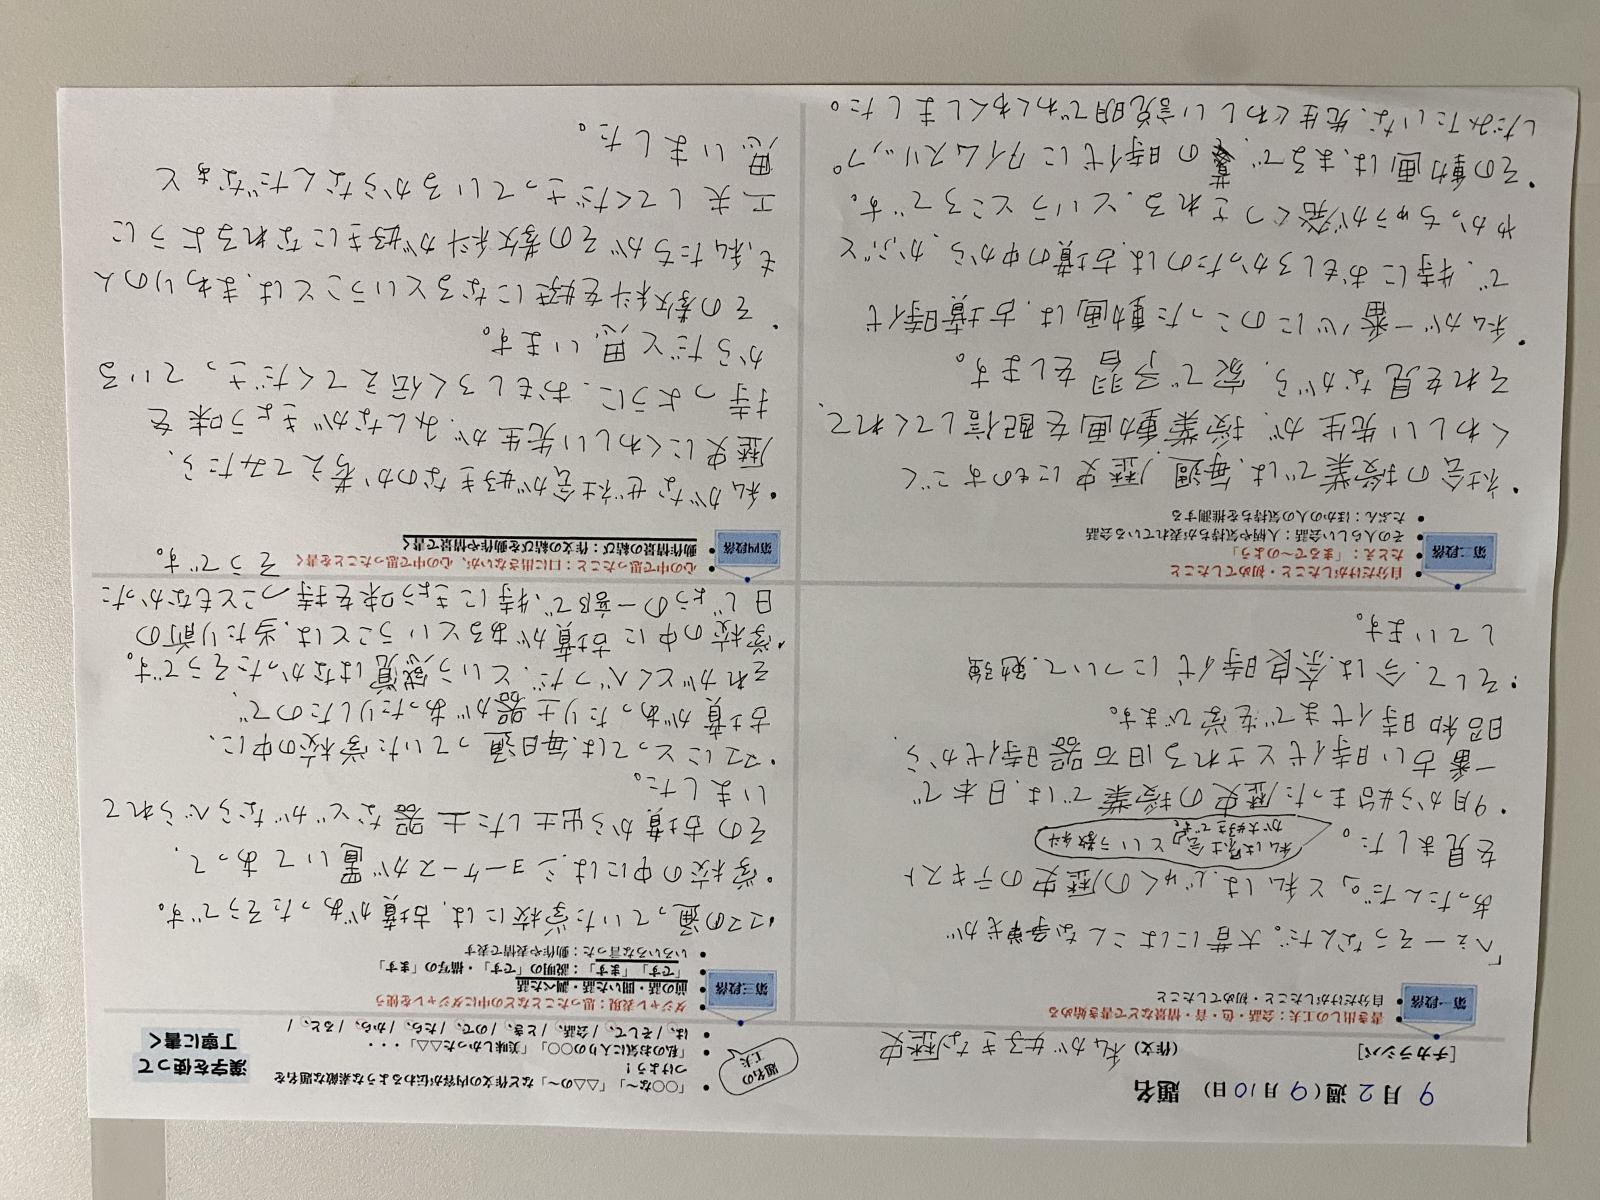 9月2週(9月10日) 題名
[チカラシバ] (作文) 私が好きな歴史
題名の工夫
「○○な～」「△△の～」など作文の内容が伝わるような素敵な題名を
つけよう！
「私のお気に入りの○○」「美味しかった△△」・・・
は、/そして、/会話、/とき、/ので、/たら、/から、/ると、/
漢字を使って
丁寧に書く
第一段落
書き出しの工夫：会話・色・音・情景・情などで書き始める
自分だけがしたこと・初めてしたこと
「へぇーそうなんだ。大昔にはこんな争が
あったんだ。」と私は、じゅくの歴史のテキスト
を見ました。
私は「社会」という教科
が大好きです。
・9月から始まった歴史の授業では、日本で
一番古い時代とされる旧石器時代から、
昭和時代までを学びます。
・そして、今は、奈良時代について、勉強
しています。
第二段落
自分だけがしたこと・初めてしたこと
たとえ：「まるで～のよう」
その人らしい会話：人柄や気持ちが表れている会話
たぶん：ほかの人の気持ちを推測する
・社会の授業では、毎週、歴史にものすごく
くわしい先生が、授業動画を配信してくれて、
それを見ながら、家で予習をします。
・私が一番心にのこった動画は、古墳時代
で、特におもしろかったのは、古墳の中から、かぶと
や、かっちゅうが発くつされる、というところです。
・その動画は、まるで、その時代にタイムスリップ。
したみたいな、先生くわしい説明でわくわくしました。
第三段落
ダジャレ表現：思ったことなどの中にダジャレを使う
前の話・聞いた話・調べた話
「です」「ます」：説明の「です」・描写の「ます」
いろいろな言った：動作や表情で表す
・ママの通っていた学校には、古墳があったそうです。
・学校の中には、ショーケースが置いてあって、
その古墳から出土した土器などがならべられて
いました。
・ママにとっては、毎日通っていた学校の中に、
古墳があったり土器があったりしたので、
それがとくべつだ、という感覚はなかったそうです。
・学校の中に古墳があるということは、当たり前の
日じょうの一部で、特にきょう味を持つこともなかった
そうです。
第四段落
心の中で思ったこと：口に出さないが、心の中で思ったことを書く
動作情景の結び：作文の結びを動作や情景で書く
・私がなぜ社会が好きなのか考えてみたら、
歴史にくわしい先生が、みんながきょう味を
持つように、おもしろく伝えてくださっている
からだと思います。
・その教科を好きになるということは、まわりの人
も、私たちがその教科が好きになれるように
工夫してくださっているからなんだなぁと
思いました。